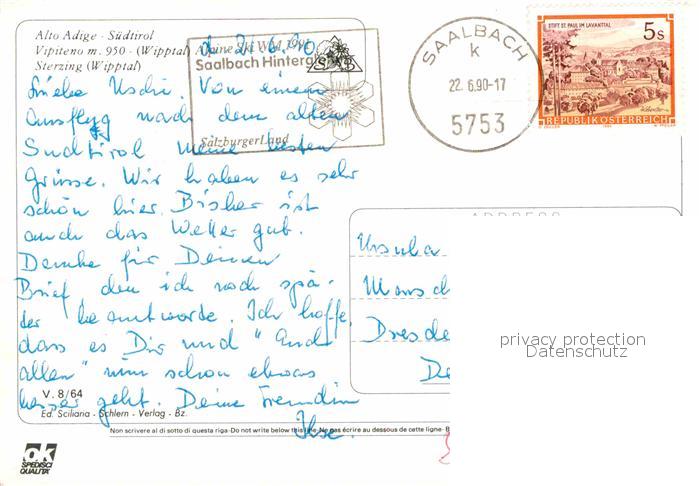 Alto Adige - Südtirol
Vipiteno m. 950 - (Wipptal)
Sterzing (Wipptal)
d. 21.6.90
Alpine Ski WM 1991
Saalbach Hintergl
SalzburgerLand
SAALBACH
k
22.6.90-17
5753
STIFT ST. PAUL IM LAVANTTAL
5s
REPUBLIK ÖSTERREICH
Liebe Uschi. Von einem
Ausflug nach dem alten
Südtirol meine besten
Grüsse. Wir haben es sehr
schön hier. Bisher ist
auch das Wetter gut.
Danke für Deinen
Brief, den ich noch spä-
ter beantworte. Ich hoffe,
dass es Dir und "Euch
allen" nun schon etwas
besser geht. Deine Freundin
Ilse.
ADDRESS
Ursula
Dresde
De
privacy protection
Datenschutz
V. 8/64
Ed. Sciliana - Schlern - Verlag - Bz.
Non scrivere al di sotto di questa riga-Do not write below this line-Ne pas écrire au dessous de cette ligne-B
ok
SPEDISCI
QUALITÀ